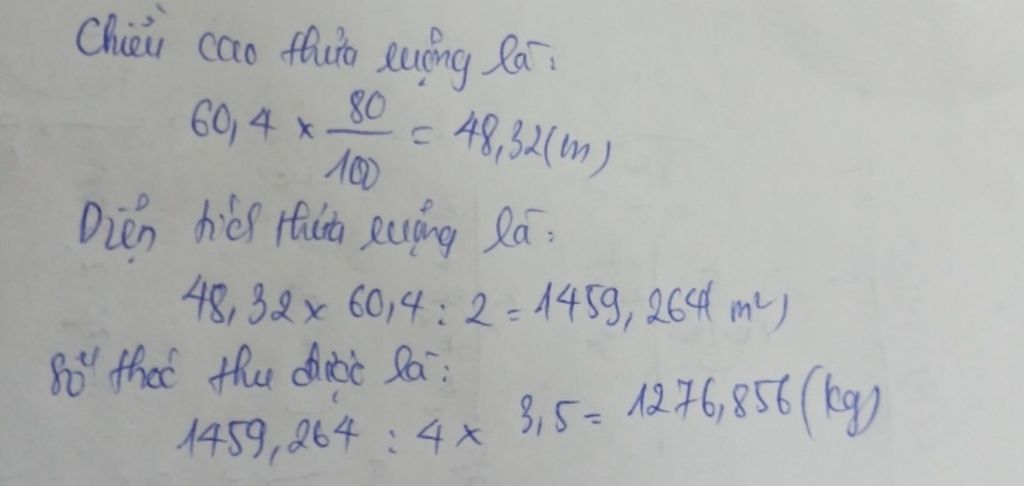 Chiều cao thửa ruộng là:
60,4 × 80/100 = 48,32(m)
Diện tích thửa ruộng là:
48,32 × 60,4 : 2 = 1459,264(m²)
Số thóc thu được là:
1459,264 : 4 × 3,5 = 1276,856 (kg)